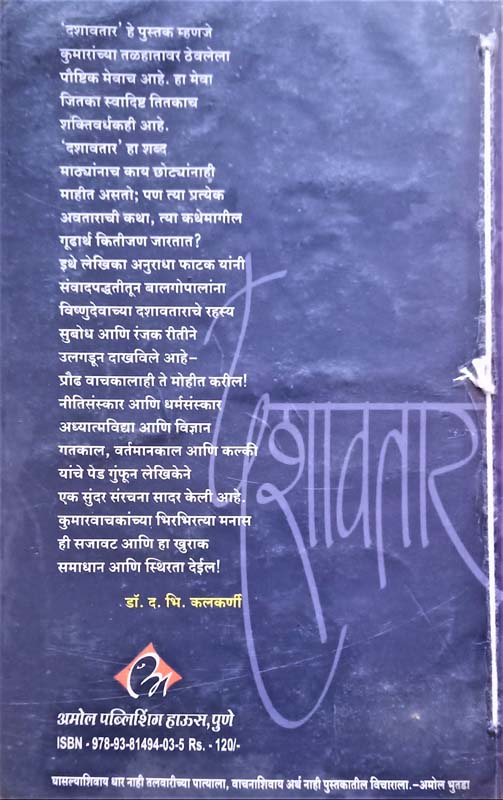 'दशावतार' हे पुस्तक म्हणजे
कुमारांच्या तळहातावर ठेवलेला
पौष्टिक मेवाच आहे. हा मेवा
जितका स्वादिष्ट तितकाच
शक्तिवर्धकही आहे.
'दशावतार' हा शब्द
माठ्यांनाच काय छोट्यांनाही
माहीत असतो; पण त्या प्रत्येक
अवताराची कथा, त्या कथेमागील
गूढार्थ कितीजण जारतात?
इथे लेखिका अनुराधा फाटक यांनी
संवादपद्धतीतून बालगोपालांना
विष्णुदेवाच्या दशावताराचे रहस्य
सुबोध आणि रंजक रीतीने
उलगडून दाखविले आहे–
प्रौढ वाचकालाही ते मोहीत करील!
नीतिसंस्कार आणि धर्मसंस्कार
अध्यात्मविद्या आणि विज्ञान
गतकाल, वर्तमानकाल आणि कल्की
यांचे पेड गुंफून लेखिकेने
एक सुंदर संरचना सादर केली आहे.
कुमारवाचकांच्या भिरभिरत्या मनास
ही सजावट आणि हा खुराक
समाधान आणि स्थिरता देईल!
डॉ. द. भि. कलकर्णी
दशावतार
अमोल पब्लिशिंग हाऊस,पुणे
ISBN - 978-93-81494-03-5 Rs. - 120/-
घासल्याशिवाय धार नाही तलवारीच्या पात्याला, वाचनाशिवाय अर्थ नाही पुस्तकातील विचाराला.–अमोल भुतडा